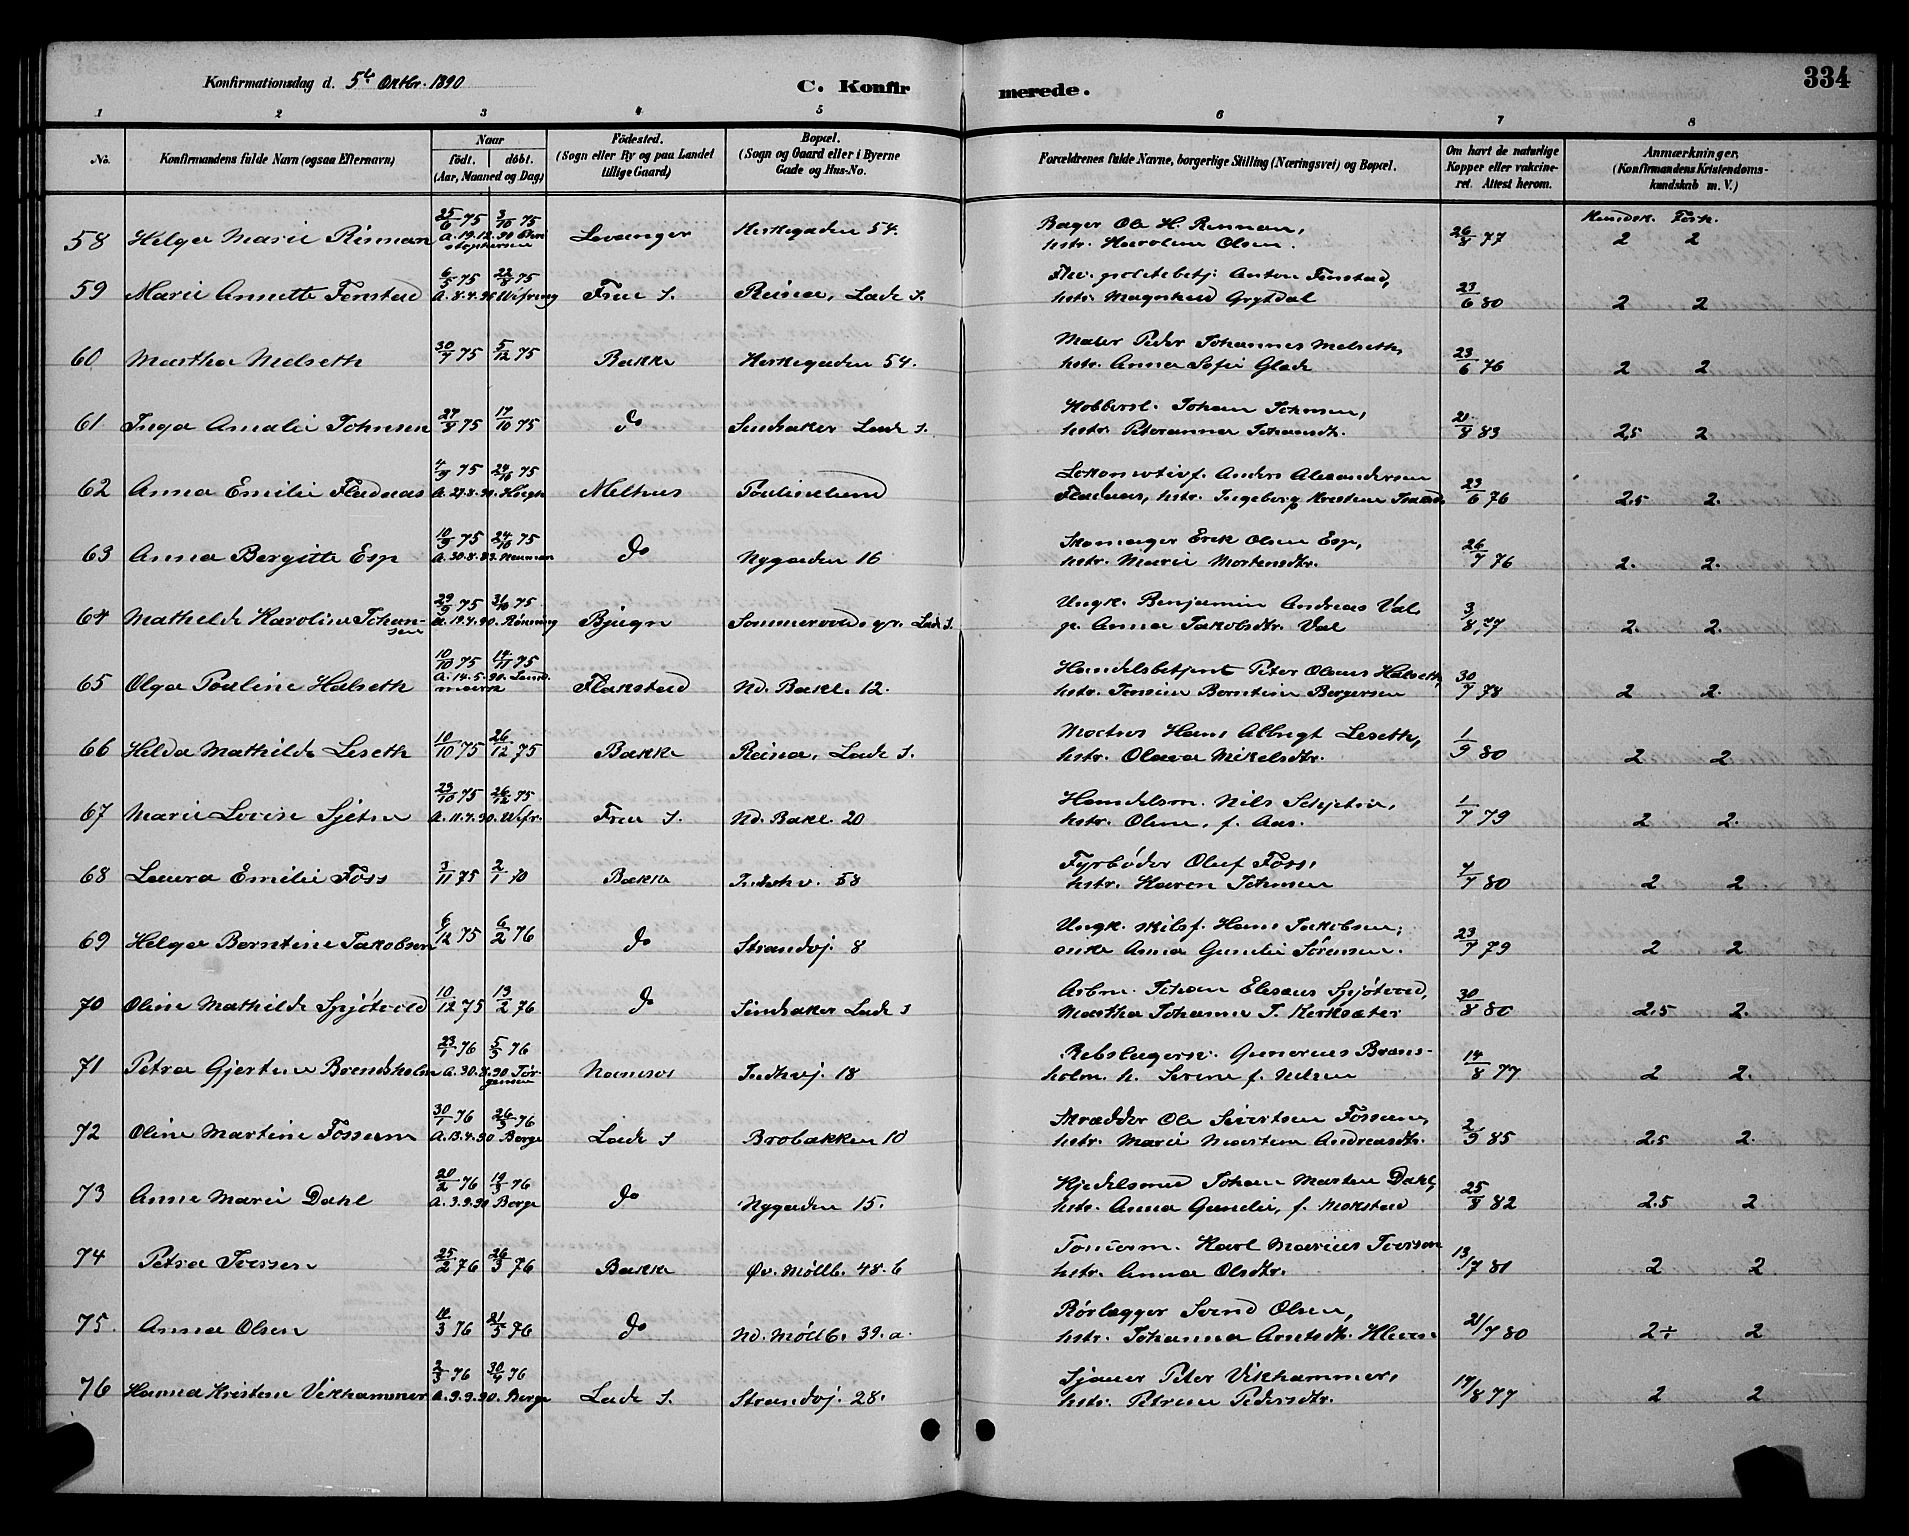 334
Konfirmationsdag d. 5te Oktbr. 1890
C. Konfirmerede.
1 2 3 4 5 6 7 8
No. Konfirmandens fulde Navn (ogsaa Efternavn) Naar født. døbt. (Aar, Maaned og Dag) Fødested. (Sogn eller By og paa Landet tillige Gaard) Bopæl. (Sogn og Gaard eller i Byerne Gade og Hus-No. Forældrenes fulde Navne, borgerlige Stilling (Næringsvei) og Bopæl. Om havt de naturlige Kopper eller vakcineret. Attest herom. Anmærkninger. (Konfirmandens Kristendomskundskab m. V.)
Kundsk. Forh.
58 Helga Marie Rinnan 25/6 75 3/10 75 Levanger 54. Bager Ole H. Rennan, 26/8 77 2 2
hstr. Karoline Olsen.
59 Marie Annette Fenstad 6/5 75 22/8 75 Frue S. Reina, Lade S. Anton Fenstad, 23/6 80 2 2
A. 8.4.90 hstr. Magnhild Grytdal
60 Martha Melseth 30/7 75 5/12 75 Bakke 54. Maler Peder Johannes Melseth, 23/6 76 2 2
hstr. Anna Sofie Glade
61 Inga Amalie Johnsen 27/8 75 17/10 75 do Lade S. Kobbersl. Johan Johnsen, 21/8 83 2,5 2
hstr. Peteranna Johansdtr.
62 Anna Emilie Fladnas 4/9 75 24/10 75 Melhus Paulinelund Lokomotivf. Anders Alexandersen 23/6 76 2.5 2.
hstr. Ingeborg Kristine
63 Anna Bergitte Esp 10/9 75 24/10 75 do Nygaden 16 Skomager Erik Olsen Esp, 26/7 76 2. 2.
hstr. Marie Mortensdtr.
64 Mathilde Karoline Johansen 29/9 75 31/10 75 Bjugn Lade S. Ungk. Benjamin Andreas Val, 3/8 77 2. 2.
p. Anna Jakobsdtr. Val
65 Olga Pauline Halseth 10/10 75 14/11 75 Flakstad Nd. Bakl. 12. Handelsbetjent Peter Olaus Halseth, 30/7 78 2 2.
A. 14.5.90. hstr. Bergersen
66 Hilda Mathilde Leseth 10/10 75 26/12 75 Bakke Reina, Lade S. Hans Albrigt Leseth, 1/9 80 2 2
hstr. Olava Mikelsdtr.
67 Marie Lovise Sjetne 23/10 75 26/12 75 Frue S. Nd. Bakl. 20 Handelsm. Nils 1/7 79 2 2.
hstr. Oline, f. Aas.
68 Laura Emilie Foss 3/11 75 Bakke Indhv. 58 Fyrbøder Oluf Foss, 7/7 80 2 2
hstr. Karen Johnsen
69 Helga Berntine Jakobsen 6/12 75 6/2 76 do Strandvj. 8 Ungk. Hans Jakobsen, 23/7 79 2 2
enke Anna Gunelie Sørensen.
70 Oline Mathilde Spjøtvold 10/12 75 13/2 76 do Lade S Arbm. Johan Eliseus Spjøtvold, 30/8 80 2,5 2.
Martha Johanna J. Kirksæter
71 Petra Gjertine Brendsholm 23/1 76 5/3 76 Namsos Indhvj. 18 Rebslagersv. Gunerius Brensholm. h. Serine f. Nilsen 14/8 77 2 2.
72 Oline Martine Fossum 30/1 76 26/3 76 Lade S Brobakken 10 Skrædder Ole Sivertsen Fossum, 2/9 85 2.5 2.
A. 13.4.90 Borge hstr. Marie Andreasdtr.
73 Anne Marie Dahl 20/2 76 19/3 76 do Nygaden 15. Kjedelsmed Johan Martin Dahl, 25/8 82 2.5 2
A. 3.9.90 Borge hstr. Anna Gunelie, f. Mokstad
74 Petra Iversen 25/2 76 26/3 76 Bakke Øv. Møllb. 48. b Karl Marius Iversen 13/7 81 2 2
hstr. Anna Olsdtr.
75. Anna Olsen 76 21/5 76 do Nd. Møllb. 39. a. Rørlægger Svend Olsen, 21/7 80 2÷ 2
hstr. Johanna Arntsdtr.
76 Hanna Kristine Vikhammer 2/3 76 30/4 76 Lade S. Strandvj. 28. Sjauer Peter Vikhammer, 17/8 77 2 2
A. 9.9.90. Borge hstr. Petrine Pedersdtr.